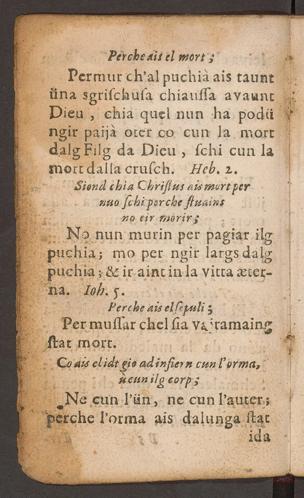 Perche ais el mort;
Permur ch'al puchià ais taunt
üna sgrischusa chiaussa avaunt
Dieu, chia quel nun ha podü
ngir paijà oter co cun la mort
dalg Filg da Dieu, schi cun la
mort dalla crusch. Heb. 2.
Siond chia Christus ais mort per
nuo schi perche stuains
no eir morir;
No nun murin per pagiar ilg
puchia; mo per ngir largs dalg
puchia; & ir aint in la vitta æter-
na. Ioh. 5.
Perche ais el sepuli;
Per mussar chel sia vairamaing
stat mort.
Co ais el idt gio ad infiern cun l'orma,
ü cun ilg corp;
Ne cun l'ün, ne cun l'auter;
perche l'orma ais dalunga stat
ida